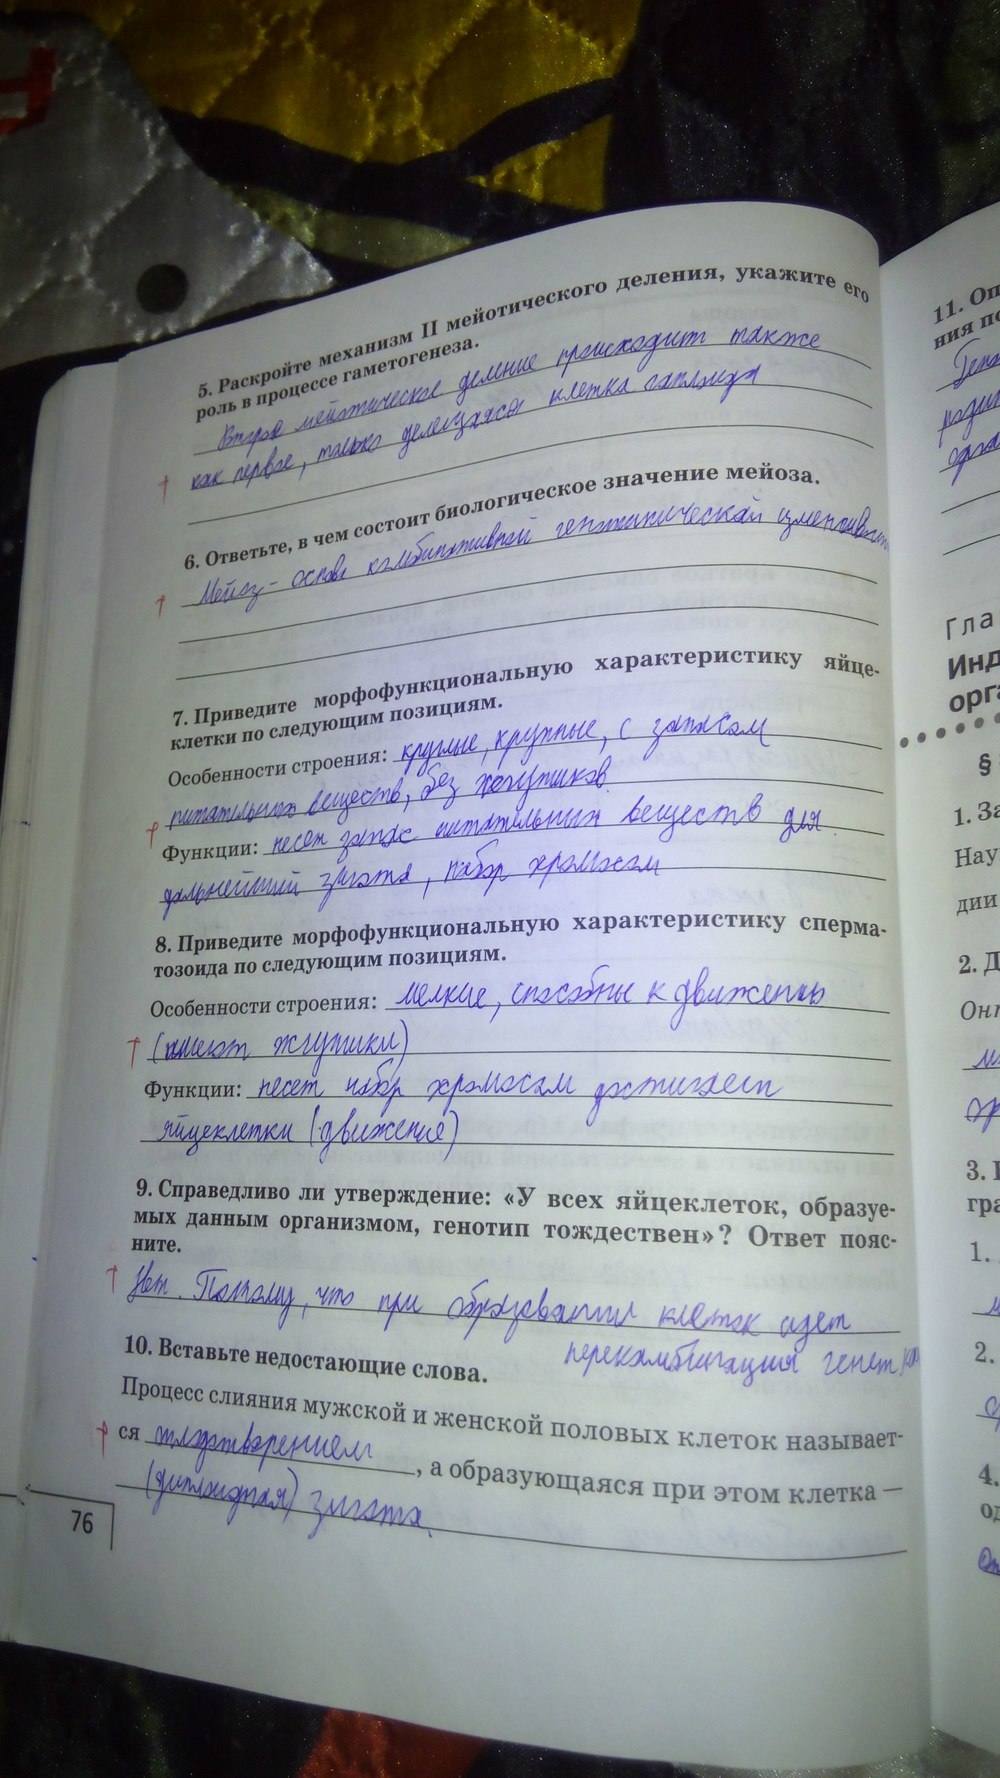 5. Раскройте механизм II мейотического деления, укажите его
роль в процессе гаметогенеза.
Второе мейотическое деление происходит также
как первое, только делящаяся клетка гаплоидa
6. Ответьте, в чем состоит биологическое значение мейоза.
Мейоз - основа комбинативной генотипической
7. Приведите морфофункциональную характеристику яйце-
клетки по следующим позициям.
Особенности строения: круглые, крупные, с запасом
питательных веществ, без жгутиков.
Функции: несет запас питательных веществ для
дальнейший зигота, набор хромосом
8. Приведите морфофункциональную характеристику сперма-
тозоида по следующим позициям.
Особенности строения: мелкие, способны к движению
(имеют жгутики)
Функции: несет набор хромосом достигает
яйцеклетки (движение)
9. Справедливо ли утверждение: «У всех яйцеклеток, образуе-
мых данным организмом, генотип тождествен»? Ответ пояс-
ните.
Нет. Потому, что при образовании клеток идет
перекомбинация генет
10. Вставьте недостающие слова.
Процесс слияния мужской и женской половых клеток называет-
ся оплодотворением, а образующаяся при этом клетка —
(диплоидная) зигота.
76
11. Оп
ния по
Гла
Инд
орга
§
1. За
Нау
дии
2. Д
Онт
3.
гра
1.
2.
4.
од